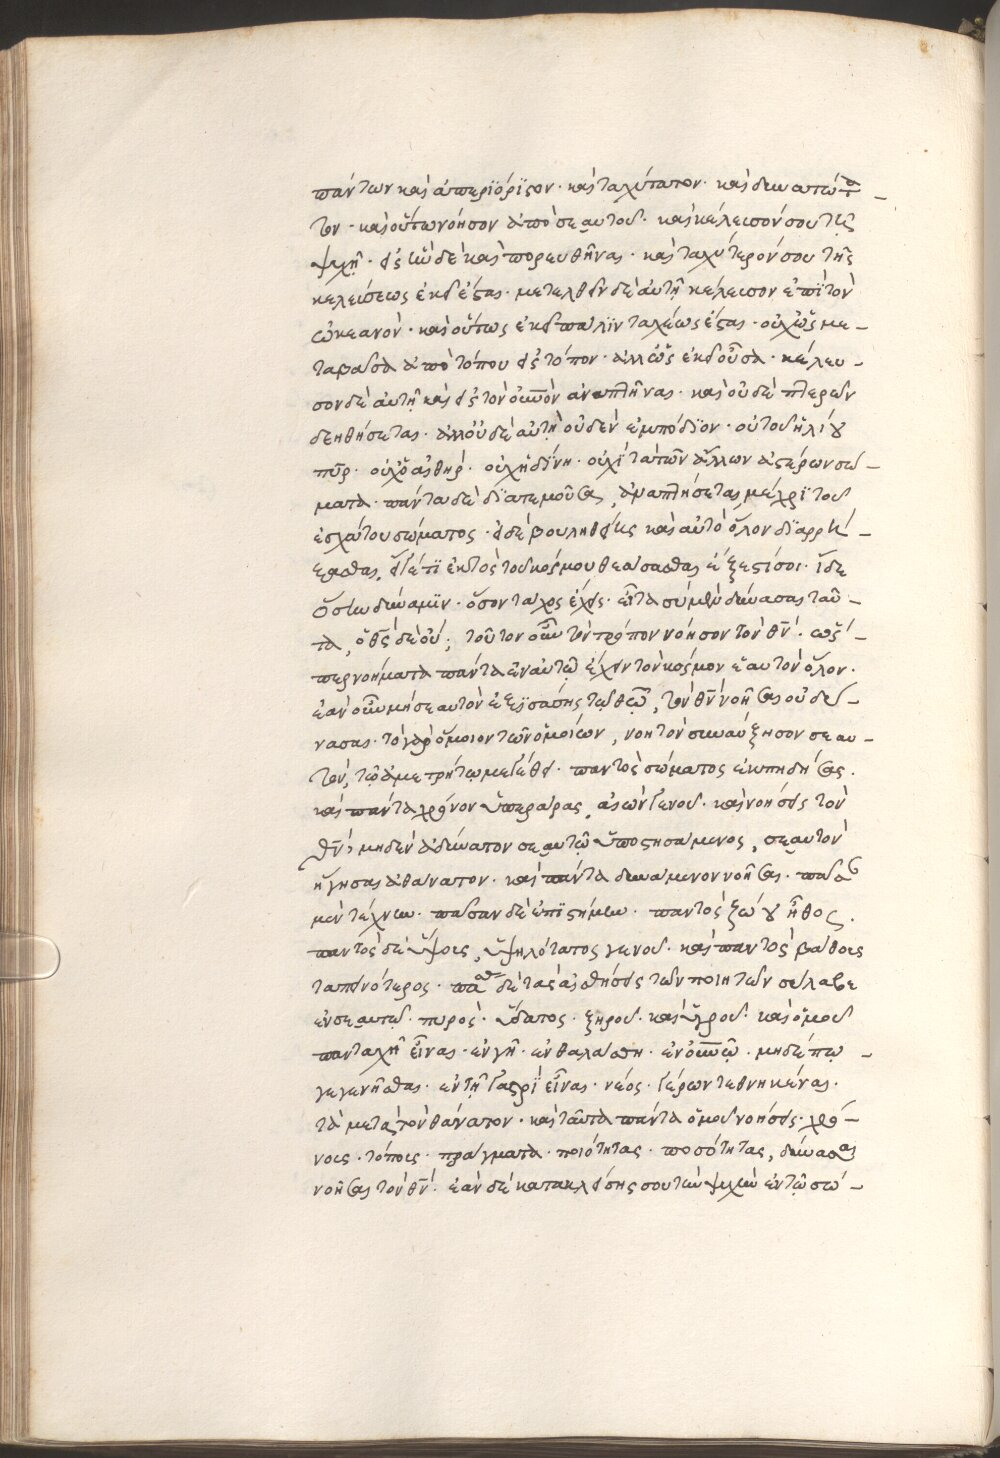 πάντων καὶ ἀπεριόριστον· καὶ ταχύτατον· καὶ δυνατώτα-
τον· καὶ οὕτω νόησον ἀπὸ σεαυτοῦ· καὶ κέλευσόν σου τῇ
ψυχῇ· εἰς ἣν δὲ καὶ πορευθῆναι· καὶ ταχύτερόν σου τῆς
κελεύσεως ἐκεῖ ἔσται· μετελθεῖν δὲ αὐτῇ κέλευσον ἐπὶ τὸν
ὠκεανὸν· καὶ οὕτως ἐκεῖ πάλιν ταχέως ἔσται· οὐχ ὡς με-
ταβᾶσα ἀπὸ τόπου εἰς τόπον· ἀλλ' ὡς ἐκεῖ οὖσα· κέλευ-
σον δὲ αὐτῇ καὶ εἰς τὸν οὐνὸν ἀναπτῆναι· καὶ οὐδὲ πτερῶν
δεηθήσεται· ἀλλ' οὐδὲ αὐτῇ οὐδὲν ἐμπόδιον· οὐ τοῦ ἡλίου
πῦρ· οὐχ ὁ αἰθήρ· οὐχ ἡ δίνη· οὐχὶ τὰ τῶν ἄλλων ἀστέρων σώ-
ματα· πάντα δὲ διατεμοῦσα, ἀναπτήσεται μέχρι τοῦ
ἐσχάτου σώματος· εἰ δὲ βουληθείης καὶ αὐτὸ ὅλον διαρρή-
ξασθαι, εἴ γέ τι ἐκτὸς τοῦ κόσμου θεάσασθαι ἔξεστί σοι· ἴδε
ὅσην δύναμιν· ὅσον τάχος ἔχεις· εἶτα σὺ μὲν δύνασαι ταῦ-
τα, ὁ θς δὲ οὔ; τοῦτον οὖν τὸν τρόπον νόησον τὸν θν· ὥσ-
περ νοήματα πάντα ἐν αὑτῷ ἔχειν τὸν κόσμον ἑαυτὸν ὅλον.
ἐὰν οὖν μὴ σεαυτὸν ἐξισάσῃς τῷ θεῷ, τὸν θν νοῆσαι οὐ δύ-
νασαι· τὸ γὰρ ὅμοιον τῶν ὁμοίων, νοητὸν συναύξησον σεαυ-
τὸν, τῷ ἀμετρήτῳ μεγέθει· παντὸς σώματος ἐκπηδήσας.
καὶ πάντα χρόνον ὑπεράρας, αἰὼν γενοῦ· καὶ νοήσεις τὸν
θν· μηδὲν ἀδύνατον σεαυτῷ ὑποστησάμενος, σεαυτὸν
ἥγησαι ἀθάνατον· καὶ πάντα δυνάμενον νοῆσαι· πᾶσαν
μὲν τέχνην· πᾶσαν δὲ ἐπιστήμην· παντὸς ζώου ἦθος.
παντὸς δὲ ὕψους, ὑψηλότατος γενοῦ· καὶ παντὸς βάθους
ταπεινότερος· πάσας δὲ τὰς αἰσθήσεις τῶν ποιητῶν σύλλαβε
ἐν σεαυτῷ· πυρὸς· ὕδατος· ξηροῦ· καὶ ὑγροῦ· καὶ ὁμοῦ
πανταχῆ εἶναι· ἐν γῆ· ἐν θαλάττη· ἐν οὐνῷ· μηδέπω-
γεγενῆσθαι· ἐν τῇ γαστρὶ εἶναι· νέος· γέρων τεθνηκέναι·
τὰ μετὰ τὸν θάνατον· καὶ ταῦτα πάντα ὁμοῦ νοήσεις· χρό-
νους· τόπους· πράγματα· ποιότητας· ποσότητας, δύνασαι
νοῆσαι τὸν θν· ἐὰν δὲ κατακλείσῃς σου τὴν ψυχὴν ἐν τῷ σώ-